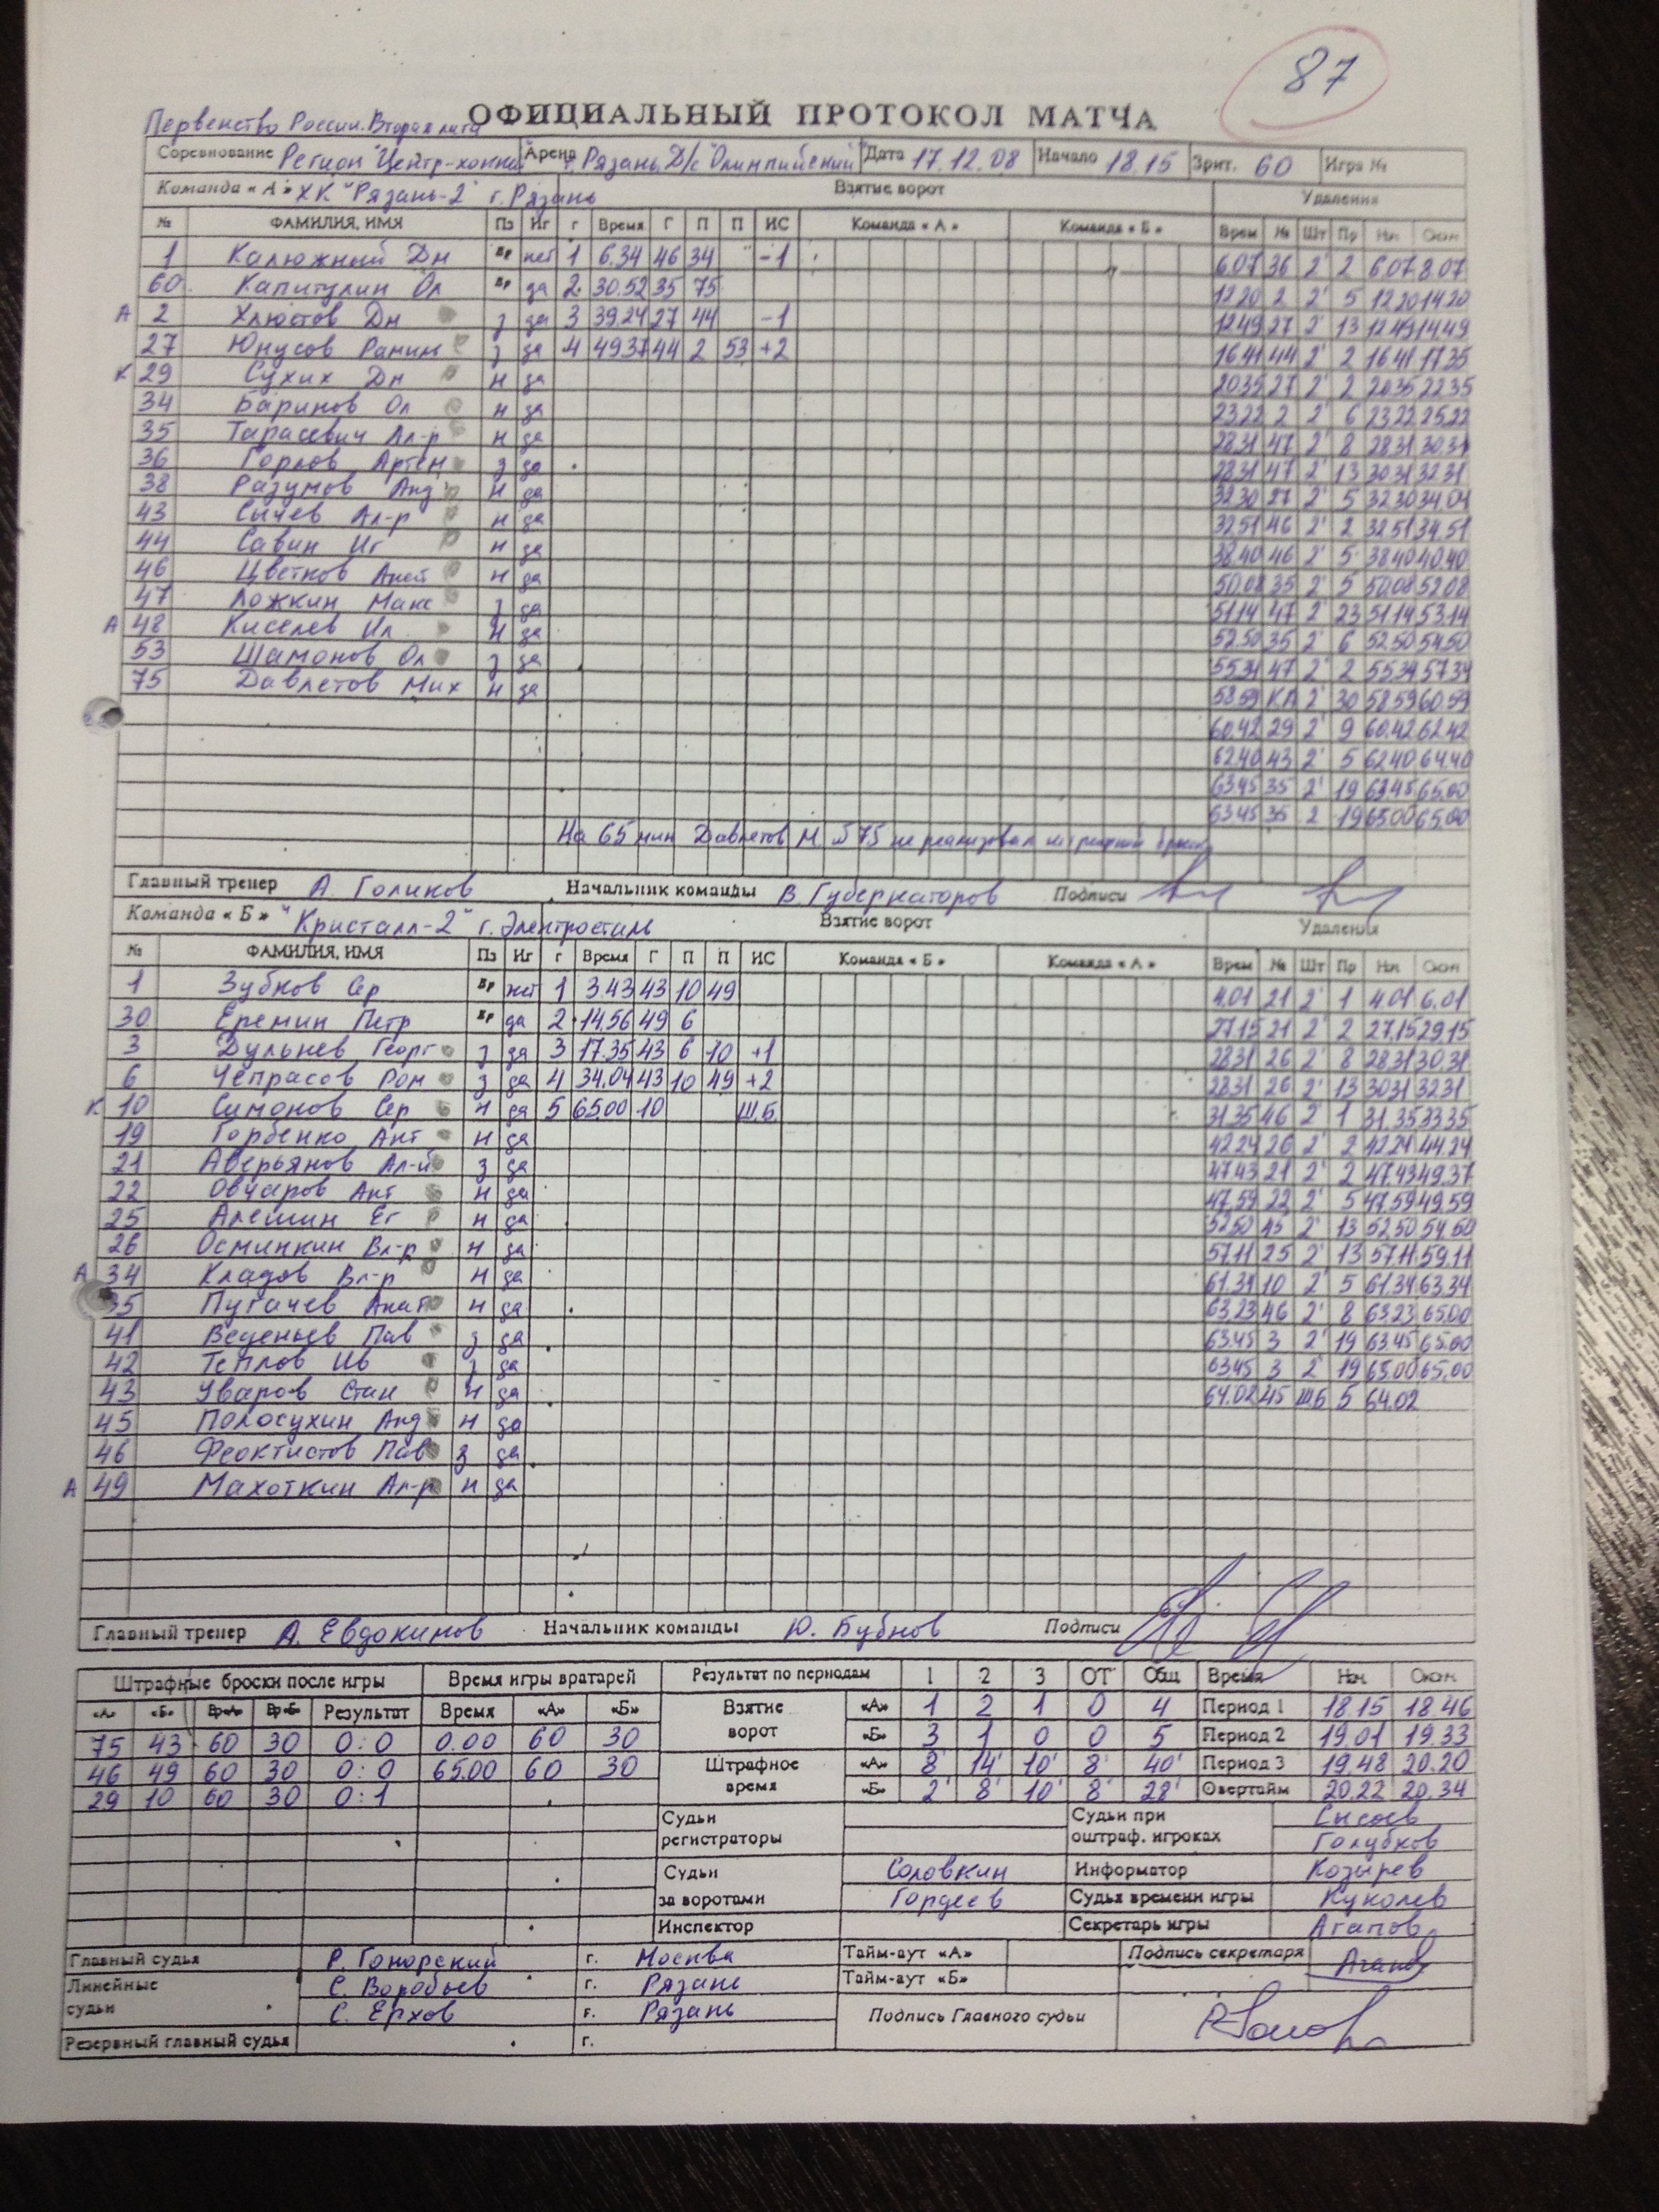 87
ОФИЦИАЛЬНЫЙ ПРОТОКОЛ МАТЧА
Первенство России. Вторая лига
Соревнование Регион "Центр-хоккей Арена г. Рязань, Д/с "Олимпийский" Дата 17.12.08 Начало 18.15 Зрит. 60 Игра №
Команда «А» ХК "Рязань-2" г. Рязань Взятие ворот Удаления
№ ФАМИЛИЯ, ИМЯ Пз Иг г Время Г П П ИС Команда «А» Команда «Б» Врем № Шт Пр Нач Окон
1 Калюжный Дм Вр нет 1 6.34 46 34 -1 6.07 36 2' 2 6.07 8.07
60 Капитулин Ол Вр да 2 30.52 35 75 12.20 2 2' 5 12.20 14.20
А 2 Хлюстов Дм з да 3 39.24 27 44 -1 12.49 27 2' 13 12.49 14.49
27 Юнусов Рамин з да 4 49.37 44 2 53 +2 16.41 44 2' 2 16.41 17.35
К 29 Сухих Дм н да 20.35 27 2' 2 20.35 22.35
34 Баринов Ол н да 23.22 2 2' 6 23.22 25.22
35 Тарасевич Ал-р н да 28.31 47 2' 8 28.31 30.31
36 Горлов Артем з да 28.31 47 2' 13 30.31 32.31
38 Разумов Анд н да 32.30 27 2' 5 32.30 34.04
43 Сычев Ал-р н да 32.51 46 2' 2 32.51 34.51
44 Савин Иг н да 38.40 46 2' 5 38.40 40.40
46 Цветков Анат н да 50.08 35 2' 5 50.08 52.08
47 Ложкин Макс з да 51.14 47 2' 23 51.14 53.14
А 48 Киселев Ил н да 52.50 35 2' 6 52.50 54.50
53 Шамонов Ол з да 55.34 47 2' 2 55.34 57.34
75 Давлетов Мих н да 58.59 КА 2' 30 58.59 60.59
60.42 29 2' 9 60.42 62.42
62.40 43 2' 5 62.40 64.40
63.45 35 2' 19 63.45 65.00
63.45 35 2 19 65.00 65.00
На 65 мин Давлетов М. №75 не реализовал штрафной бросок
Главный тренер А. Голиков Начальник команды В. Губернаторов Подписи
Команда «Б» "Кристалл-2" г. Электросталь Взятие ворот Удаления
№ ФАМИЛИЯ, ИМЯ Пз Иг г Время Г П П ИС Команда «Б» Команда «А» Врем № Шт Пр Нач Окон
1 Зубков Сер Вр нет 1 3.43 43 10 49 4.01 21 2' 1 4.01 6.01
30 Еремин Петр Вр да 2 14.56 49 6 27.15 21 2' 2 27.15 29.15
3 Дульнев Георг з да 3 17.35 43 6 10 +1 28.31 26 2' 8 28.31 30.31
6 Чепрасов Ром з да 4 34.04 43 10 49 +2 28.31 26 2' 13 30.31 32.31
К 10 Симонов Сер н да 5 65.00 10 Ш.Б. 31.35 46 2' 1 31.35 33.35
19 Горбенко Ант н да 42.24 26 2' 2 42.24 44.24
21 Аверьянов Ал-й з да 47.43 21 2' 2 47.43 49.37
22 Овчаров Ант н да 47.59 22 2' 5 47.59 49.59
25 Алешин Ег н да 52.50 45 2' 13 52.50 54.50
26 Осминкин Вл-р н да 57.11 25 2' 13 57.11 59.11
А 34 Кладов Вл-р н да 61.34 10 2' 5 61.34 63.34
35 Пугачев Анат н да 63.23 46 2' 8 63.23 65.00
41 Веденьев Пав з да 63.45 3 2' 19 63.45 65.00
42 Теплов Ив з да 63.45 3 2' 19 65.00 65.00
43 Уваров Стан н да 64.02 45 Ш.Б 5 64.02
45 Полосухин Анд н да
46 Феоктистов Пав з да
А 49 Махоткин Ал-р н да
Главный тренер А. Евдокимов Начальник команды Ю. Бубнов Подписи
Штрафные броски после игры Время игры вратарей Результат по периодам 1 2 3 ОТ Общ Время Нач. Окон.
«А» «Б» Вр«А» Вр«Б» Результат Время «А» «Б» Взятие ворот «А» 1 2 1 0 4 Период 1 18.15 18.46
75 43 60 30 0:0 0.00 60 30 «Б» 3 1 0 0 5 Период 2 19.01 19.33
46 49 60 30 0:0 65.00 60 30 Штрафное время «А» 8' 14' 10' 8' 40' Период 3 19.48 20.20
29 10 60 30 0:1 «Б» 2' 8' 10' 8' 28' Овертайм 20.22 20.34
Судьи регистраторы Судьи при оштраф. игроках Сысоев
Голубков
Судьи за воротами Соловкин Информатор Козырев
Гордеев Судья времени игры Куколев
Инспектор Секретарь игры Агапов
Главный судья Р. Гонорский г. Москва Тайм-аут «А» Подпись секретаря
Линейные судьи С. Воробьев г. Рязань Тайм-аут «Б»
С. Ерхов г. Рязань Подпись Главного судьи
Резервный главный судья г.